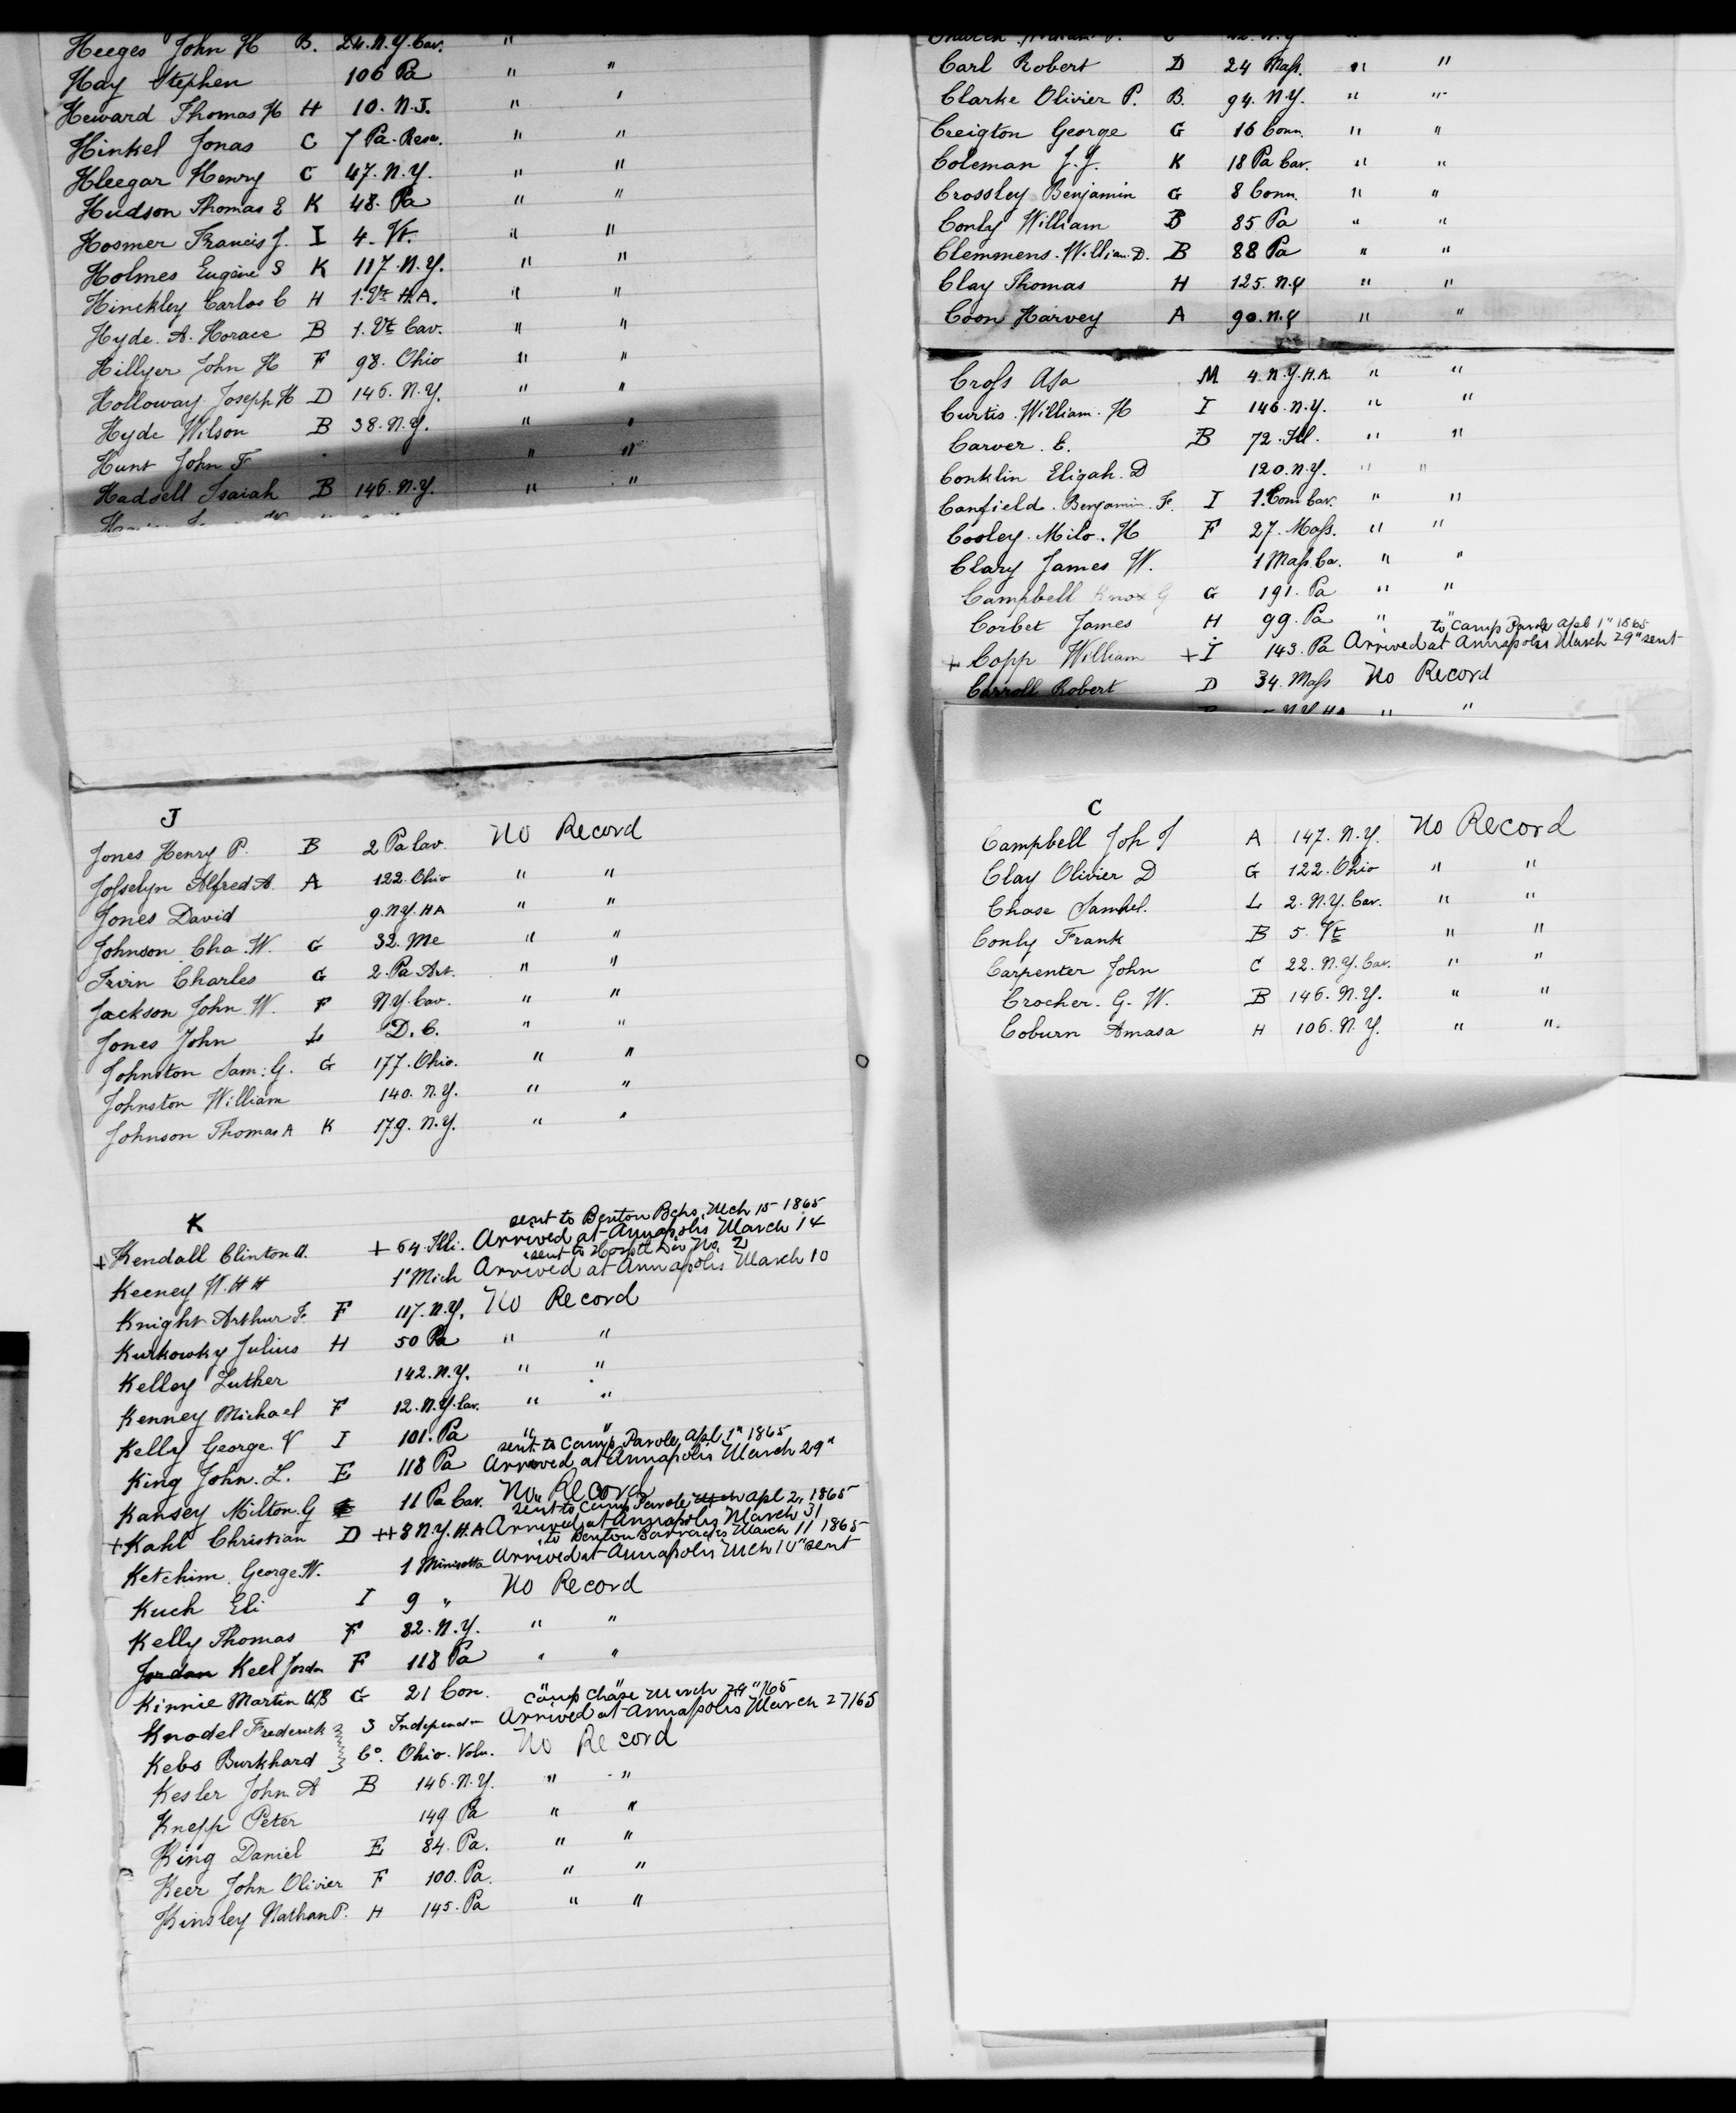 Heeges John H B. 24. N.Y. Cav. "
Hay Stephen 106 Pa " "
Heward Thomas H H 10. N.J. " "
Hinkel Jonas C 7 Pa. Resv. " "
Hleegar Henry C 47. N.Y. " "
Hudson Thomas E K 48. Pa " "
Hosmer Francis J. I 4. Vt. " "
Holmes Eugene S K 117. N.Y. " "
Hinckley Carlos C H 1. Vt H.A. " "
Hyde. A. Horace B 1. Vt Cav. " "
Hillyer John H F 98. Ohio " "
Holloway Joseph H D 146. N.Y. " "
Hyde Wilson B 38. N.Y. " "
Hunt John F " "
Hadsell Isaiah B 146. N.Y. " "
J
Jones Henry P. B 2 Pa Cav. No Record
Joſselyn Alfred A. A 122. Ohio " "
Jones David 9. N.Y. HA " "
Johnson Cha. W. G 32. Me " "
Irvin Charles G 2. Pa Art. " "
Jackson John W. F N.Y. Cav. " "
Jones John L D. C. " "
Johnston Sam: G. G 177. Ohio. " "
Johnston William 140. N.Y. " "
Johnson Thomas A K 179. N.Y. " "
K
sent to Benton Bcks. Mch 15 1865
+ Kendall Clinton A. + 64. Illi. Arrived at Annapolis March 14
sent to Hospitl Div No. 2
Keeney W. H H 1" Mich Arrived at Annapolis March 10
Knight Arthur F. F 117. N.Y. No Record
Kurkowky Julius H 50 Pa " "
Kelley Luther 142. N.Y. " "
Kenney Michael F 12. N.Y. Cav. " "
Kelly George. V I 101. Pa " "
sent to Camp Parole Apl 1" 1865
King John. L. E 118 Pa Arrived at Annapolis March 29"
Kansey Milton. G 11 Pa Cav. No Record
sent to Camp Parole Mch Apl 2, 1865
+ Kahl Christian D ++ 8 N.Y. H.A Arrived at Annapolis March 31
to Benton Barracks March 11 1865
Ketchim George W. 1 Minisotta Arrived at Annapolis Mch 10" sent
Kuch Eli I 9 " No Record
Kelly Thomas F 82. N.Y. " "
Jordan Keel Jordan F 118 Pa " "
Kinnie Martin G 21 Con. " "
Camp Chase March 29"/65
Knodel Frederick } 3 Independn Arrived at Annapolis March 27/65
Kebs Burkhard } Co. Ohio. Volu. No Record
Kesler John A B 146. N.Y. " "
Knepp Peter 149 Pa " "
King Daniel E 84. Pa. " "
Keer John Olivier F 100. Pa. " "
Kinsley Nathan P. H 145. Pa " "
Carl Robert D 24 Maſs. " "
Clarke Olivier P. B. 94. N.Y. " "
Creigton George G 16 Conn. " "
Coleman J. J. K 18 Pa Cav. " "
Crossley Benjamin G 8 Conn. " "
Conly William B 85 Pa " "
Clemmens. William D. B 88 Pa " "
Clay Thomas H 125. N.Y " "
Coon Harvey A 90. N.Y " "
Croſs Asa M 4. N.Y. H.A. " "
Curtis. William. H I 146. N.Y. " "
Carver. E. B 72. Ill. " "
Conklin Eligah. D 120. N.Y. " "
Canfield. Benjamin. F. I 1. Conn Cav. " "
Cooley. Milo. H F 27. Maſs. " "
Clary James W. 1 Maſs. Ca. " "
Campbell Knox G G 191. Pa " "
Corbet James H 99. Pa " "
to Camp Parole Apl 1" 1865
+ Copp William + I 143. Pa Arrived at Annapolis March 29" sent
Carroll Robert D 34. Maſs No Record
N.Y. HA " "
C
Campbell Joh J A 147. N.Y. No Record
Clay Olivier D G 122. Ohio " "
Chase Samuel. L 2. N.Y. Cav. " "
Conly Frank B 5. Vt " "
Carpenter John C 22. N.Y. Cav. " "
Crocher. G. W. B 146. N.Y. " "
Coburn Amasa H 106. N.Y. " "